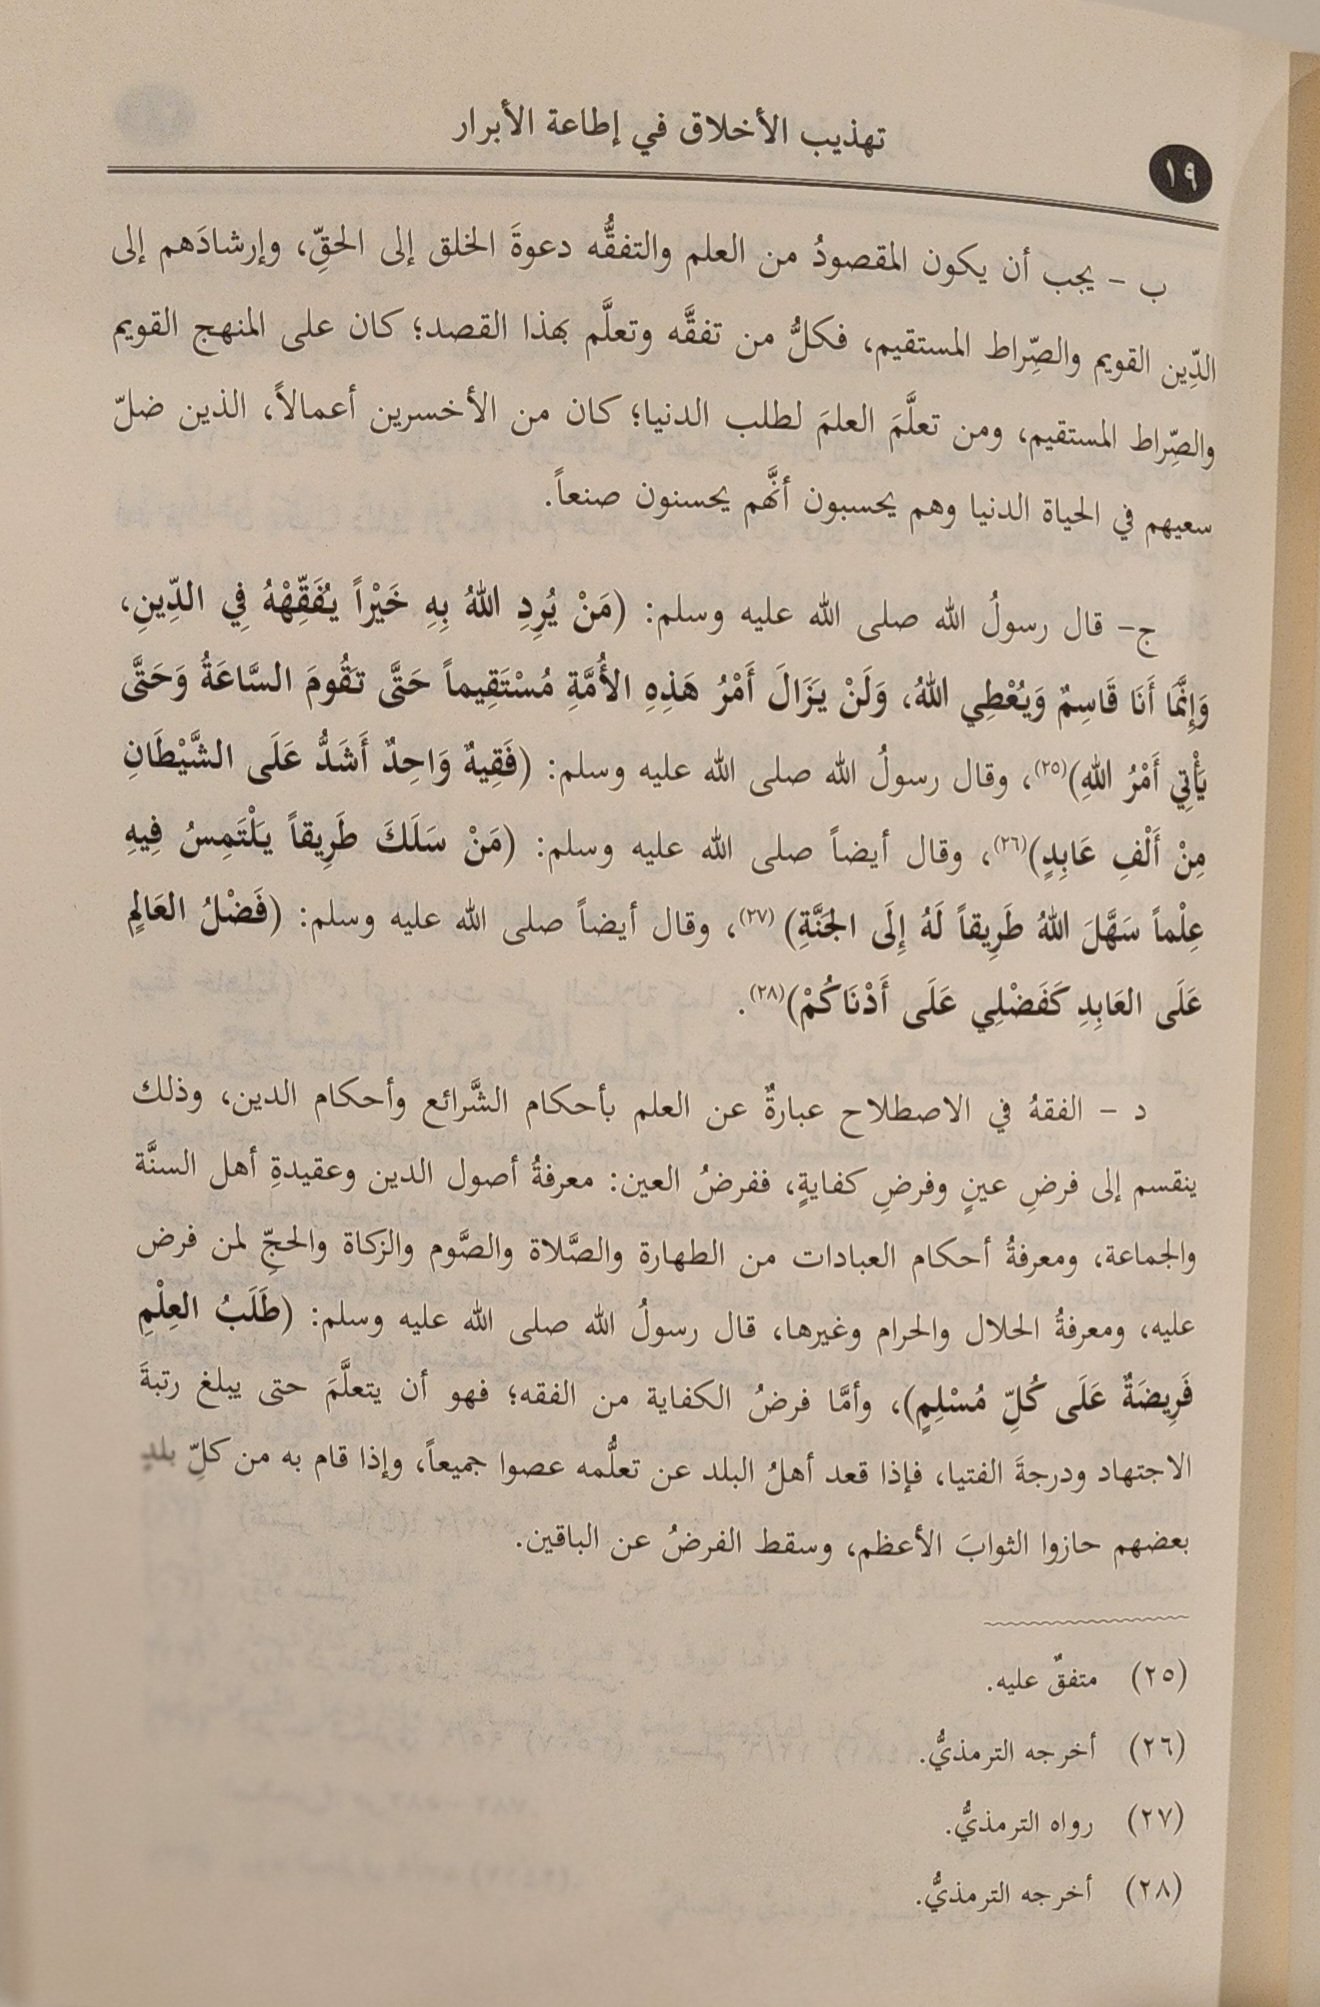 تهذيب الأخلاق في إطاعة الأبرار
١٩
ب - يجب أن يكون المقصودُ من العلم والتفقُّه دعوةَ الخلق إلى الحقِّ، وإرشادَهم إلى
الدِّين القويم والصِّراط المستقيم، فكلُّ من تفقَّه وتعلَّم بهذا القصد؛ كان على المنهج القويم
والصِّراط المستقيم، ومن تعلَّمَ العلمَ لطلب الدنيا؛ كان من الأخسرين أعمالاً، الذين ضلّ
سعيهم في الحياة الدنيا وهم يحسبون أنَّهم يحسنون صنعاً.
ج- قال رسولُ الله صلى الله عليه وسلم: (مَنْ يُرِدِ اللهُ بِهِ خَيْراً يُفَقِّهْهُ فِي الدِّينِ،
وَإِنَّمَا أَنَا قَاسِمٌ وَيُعْطِي اللهُ، وَلَنْ يَزَالَ أَمْرُ هَذِهِ الأُمَّةِ مُسْتَقِيماً حَتَّى تَقُومَ السَّاعَةُ وَحَتَّى
يَأْتِي أَمْرُ اللهِ)(٢٥)، وقال رسولُ الله صلى الله عليه وسلم: (فَقِيهٌ وَاحِدٌ أَشَدُّ عَلَى الشَّيْطَانِ
مِنْ أَلْفِ عَابِدٍ)(٢٦)، وقال أيضاً صلى الله عليه وسلم: (مَنْ سَلَكَ طَرِيقاً يَلْتَمِسُ فِيهِ
عِلْماً سَهَّلَ اللهُ طَرِيقاً لَهُ إِلَى الجَنَّةِ) (٢٧)، وقال أيضاً صلى الله عليه وسلم: (فَضْلُ العَالِمِ
عَلَى العَابِدِ كَفَضْلِي عَلَى أَدْنَاكُمْ)(٢٨).
د - الفقهُ في الاصطلاح عبارةٌ عن العلم بأحكام الشَّرائع وأحكام الدين، وذلك
ينقسم إلى فرضِ عينٍ وفرضِ كفايةٍ، ففرضُ العين: معرفةُ أصول الدين وعقيدةِ أهل السنَّة
والجماعة، ومعرفةُ أحكام العبادات من الطهارة والصَّلاة والصَّوم والزكاة والحجِّ لمن فرض
عليه، ومعرفةُ الحلال والحرام وغيرها، قال رسولُ الله صلى الله عليه وسلم: (طَلَبُ العِلْمِ
فَرِيضَةٌ عَلَى كُلِّ مُسْلِمٍ)، وأمَّا فرضُ الكفاية من الفقه؛ فهو أن يتعلَّمَ حتى يبلغ رتبةَ
الاجتهاد ودرجةَ الفتيا، فإذا قعد أهلُ البلد عن تعلُّمه عصوا جميعاً، وإذا قام به من كلِّ بلدٍ
بعضهم حازوا الثوابَ الأعظم، وسقط الفرضُ عن الباقين.
(٢٥) متفقٌ عليه.
(٢٦) أخرجه الترمذيُّ.
(٢٧) رواه الترمذيُّ.
(٢٨) أخرجه الترمذيُّ.